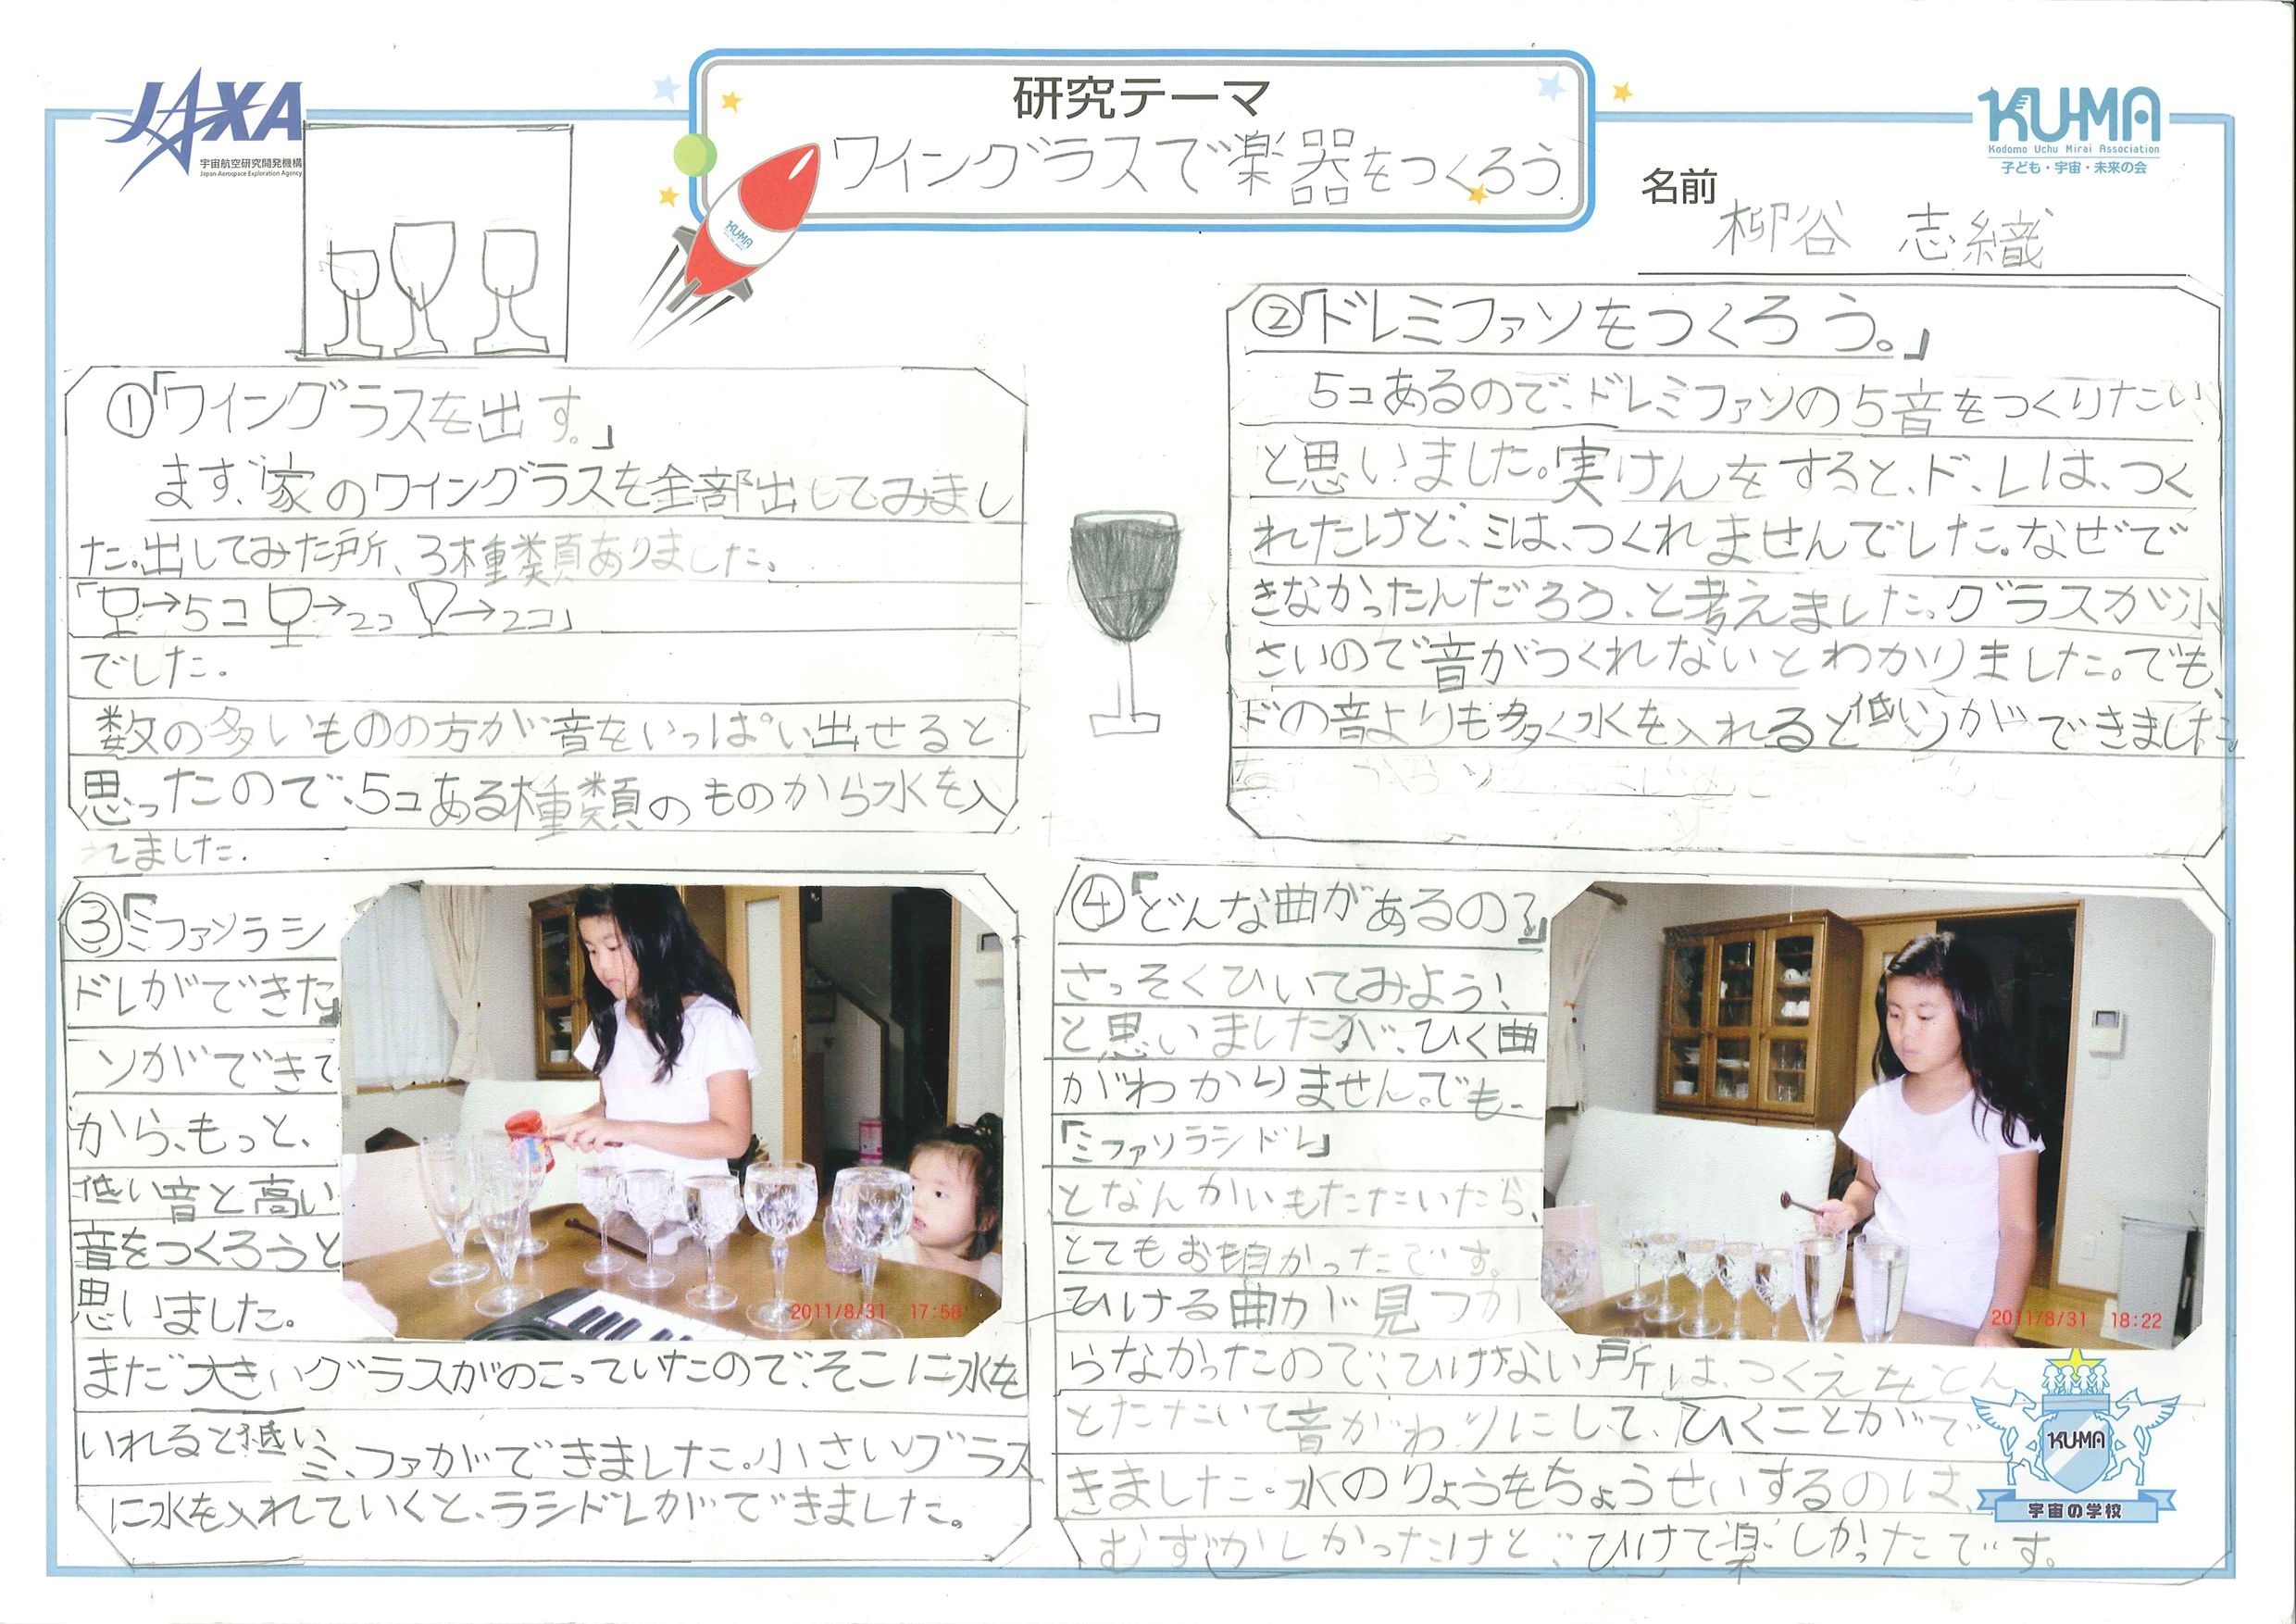 JAXA
宇宙航空研究開発機構
Japan Aerospace Exploration Agency
研究テーマ
ワイングラスで楽器をつくろう
KUMA
KU-MA
Kodomo Uchu Mirai Association
子ども・宇宙・未来の会
名前
柳谷 志織
①「ワイングラスを出す。」
まず、家のワイングラスを全部出してみまし
た。出してみた所、3種類ありました。
「→5コ →2コ →2コ」
でした。
数の多いものの方が音をいっぱい出せると
思ったので、5コある種類のものから水を入
れました。
②「ドレミファソをつくろう。」
5コあるので、ドレミファソの5音をつくりたい
と思いました。実けんをすると、ド、レは、つく
れたけど、ミは、つくれませんでした。なぜで
きなかったんだろう、と考えました。グラスが小
さいので音がつくれないとわかりました。でも、
ドの音よりも多く水を入れると低いソができました。
③「ミファソラシ
ドレができた」
ソができて
から、もっと、
低い音と高い
音をつくろうと
思いました。
まだ大きいグラスがのこっていたので、そこに水を
いれると低いミ、ファができました。小さいグラス
に水を入れていくと、ラシドレができました。
2011/8/31 17:58
④「どんな曲があるの?」
さっそくひいてみよう!
と思いましたが、ひく曲
がわかりません。でも、
「ミファソラシドレ」
となんかいもたたいたら、
とてもお煩かったです。
ひける曲が見つか
らなかったので、ひけない所は、つくえをとん
とたたいて音がわりにして、ひくことがで
きました。水のりょうをちょうせいするのは、
むずかしかったけど、ひけて楽しかったです。
2011/8/31 18:22
KUMA
宇宙の学校